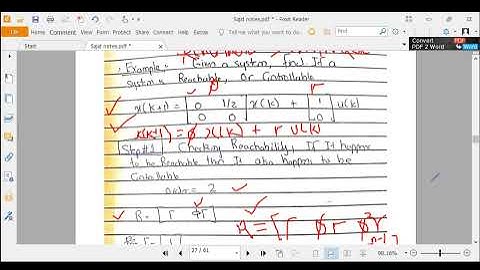 Sajid notes.pdf * - Foxit Reader
File
Home
Comment
View
Form
Protect
Share
Help
Tell me...
Convert
PDF 2 Word
Start
Sajid notes.pdf *
Example:- Given a system, find It a
system is Reachable, or Controllable
x(k+1) = [0 1/2; 0 0] x(k) + [1; 0] u(k)
x(k+1) = ϕ x(k) + Γ u(k)
Step#1, Checking Reachability, If It happen
to be Reachable then It also happen to be
Controllable
order = 2
R = [Γ ϕΓ]
R = [Γ ϕΓ ϕ²Γ
n-1
27 / 61